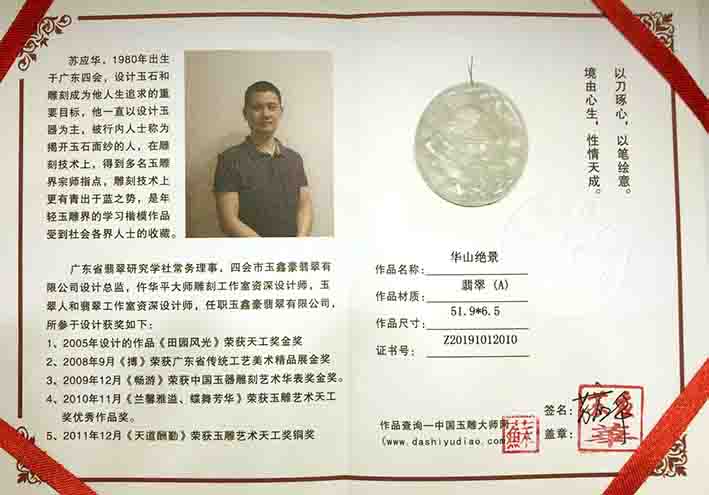 苏应华，1980年出生
于广东四会，设计玉石和
雕刻成为他人生追求的重
要目标，他一直以设计玉
器为主，被行内人士称为
揭开玉石面纱的人，在雕
刻技术上，得到多名玉雕
界宗师指点，雕刻技术上
更有青出于蓝之势，是年
轻玉雕界的学习楷模作品
受到社会各界人士的收藏。
广东省翡翠研究学社常务理事，四会市玉鑫豪翡翠有
限公司设计总监，仵华平大师雕刻工作室资深设计师，玉
翠人和翡翠工作室资深设计师，任职玉鑫豪翡翠有限公司，
所参于设计获奖如下：
1、2005年设计的作品《田园风光》荣获天工奖金奖
2、2008年9月《搏》荣获广东省传统工艺美术精品展金奖
3、2009年12月《畅游》荣获中国玉器雕刻艺术华表奖金奖。
4、2010年11月《兰馨雅溢、蝶舞芳华》荣获玉雕艺术天工
奖优秀作品奖。
5、2011年12月《天道酬勤》荣获玉雕艺术天工奖铜奖
以刀琢心，以笔绘意。
境由心生，性情天成。
作品名称：华山绝景
作品材质：翡翠 (A)
作品尺寸：51.9*6.5
证书号：Z20191012010
作品查询—中国玉雕大师网
(www.dashiyudiao.com)
签名：
盖章：
蘇